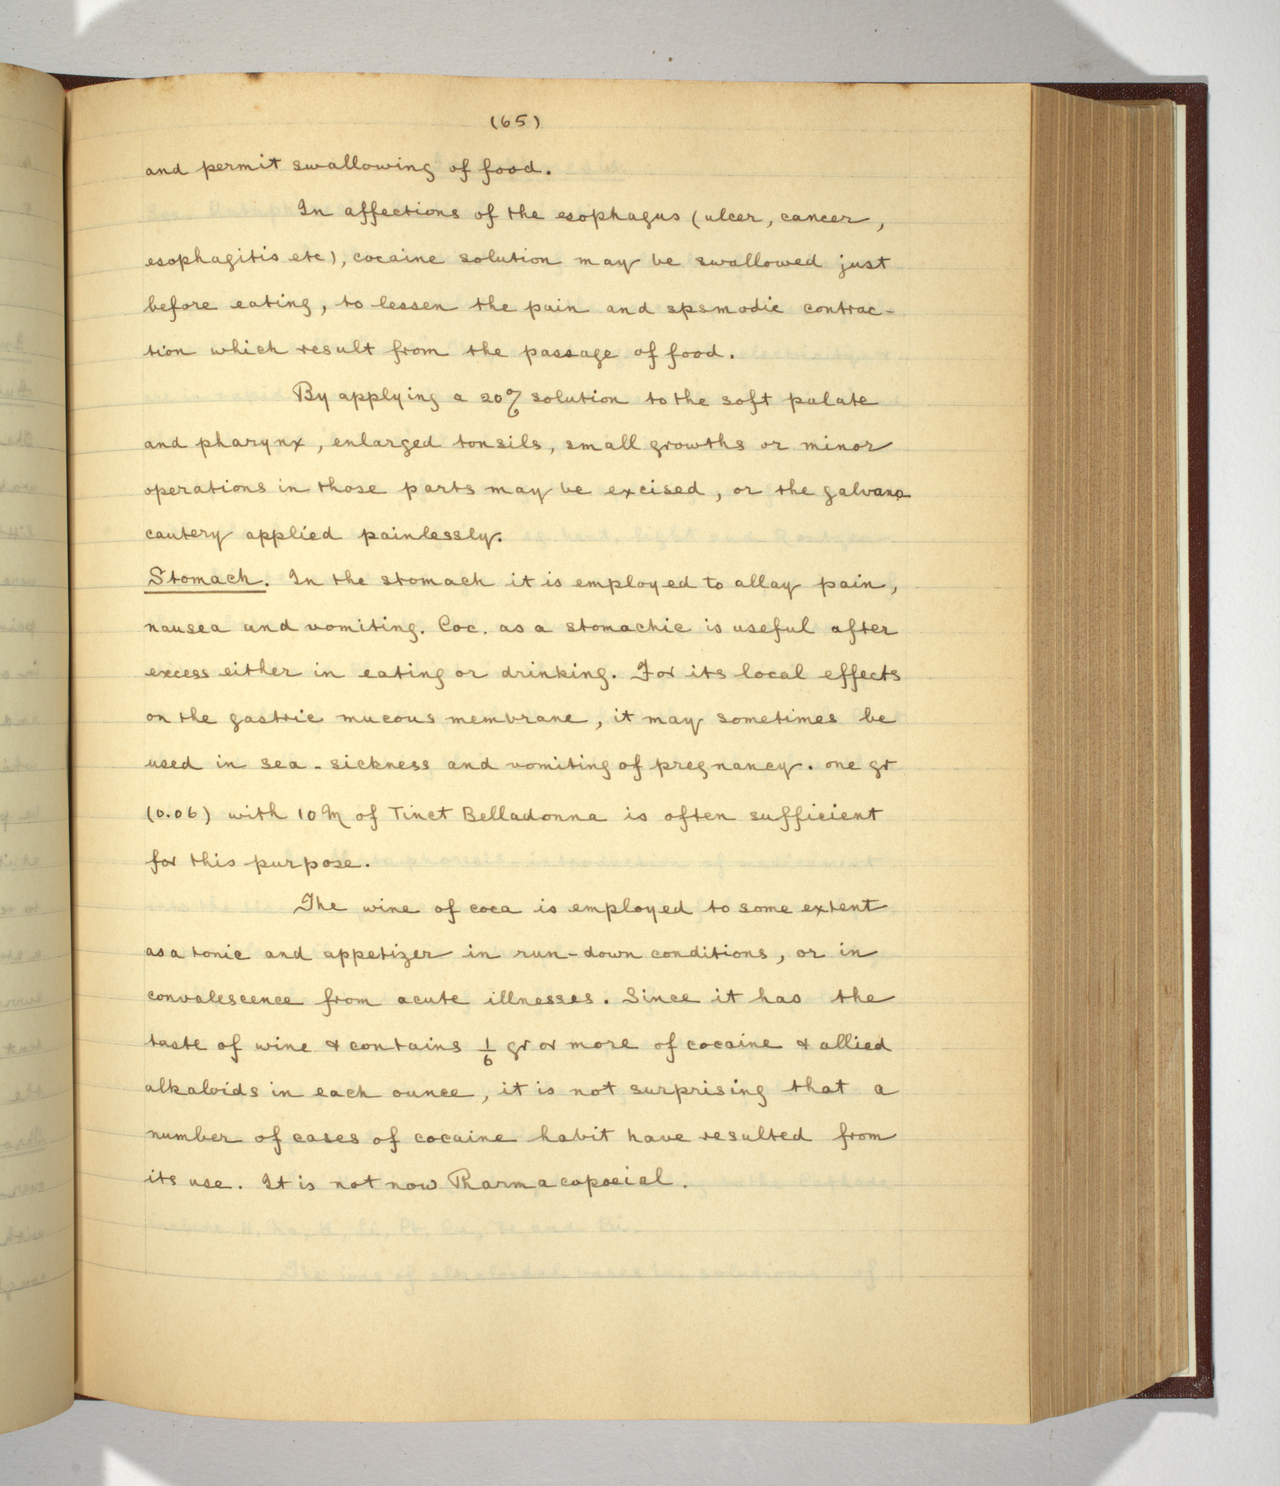 (65)
and permit swallowing of food.
In affections of the esophagus (ulcer, cancer,
esophagitis etc), cocaine solution may be swallowed just
before eating, to lessen the pain and spsmodic contrac-
tion which result from the passage of food.
By applying a 20% solution to the soft palate
and pharynx, enlarged tonsils, small growths or minor
operations in those parts may be excised, or the galvano
cautery applied painlessly.
Stomach. In the stomach it is employed to allay pain,
nausea and vomiting. Coc. as a stomachic is useful after
excess either in eating or drinking. For its local effects
on the gastric mucous membrane, it may sometimes be
used in sea-sickness and vomiting of pregnancy. one gr
(0.06) with 10 ♏ of Tinct Belladonna is often sufficient
for this purpose.
The wine of coca is employed to some extent
as a tonic and appetizer in run-down conditions, or in
convalescence from acute illnesses. Since it has the
taste of wine & contains 1/6 gr or more of cocaine & allied
alkaloids in each ounce, it is not surprising that a
number of cases of cocaine habit have resulted from
its use. It is not now Pharmacopoeial.